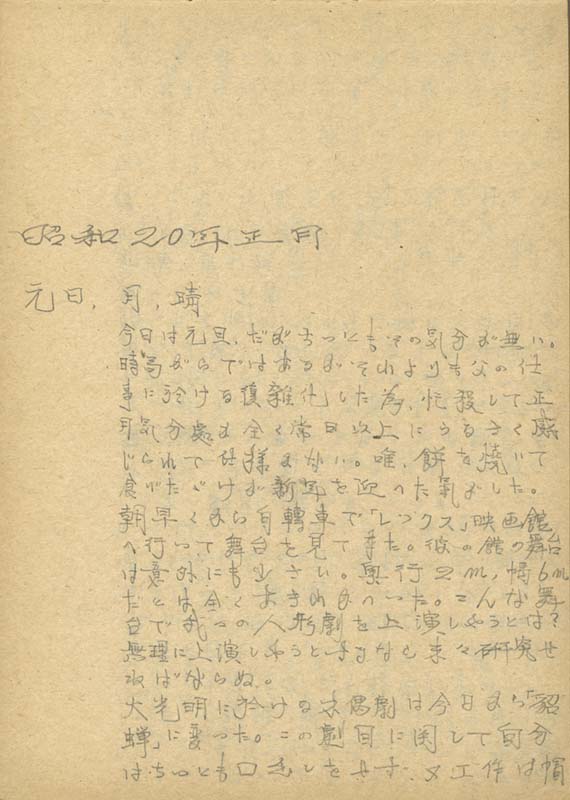 昭和20年正月
元日,月,晴
今日は元旦,だがちっともその気分が無い。
時局がらではあるがそれよりも父の仕
事に於ける復雑化した為,忙殺して正
月気分處か全く常日以上にうるさく感
じられて仕様がない。唯,餅を焼いて
食べただけが新年を迎へた氣がした。
朝早くから自轉車で「レックス」映画館
へ行って舞台を見て来た。彼の館の舞台
は意外にも小さい。奥行2m,幅6m
だとは全くあきれかへった。こんな舞
台で我々の人形劇を上演しやうとは?
無理に上演しやうとするなら来々研究せ
ねばならぬ。
大光明に於ける木偶劇は今日から「貂
蝉」に変った。この劇目に関して自分
はちっとも口出しをせず,又工作は帽